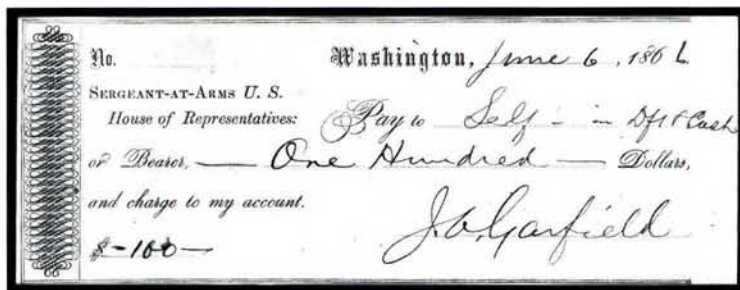 No. Washington, June 6, 1866.
SERGEANT-AT-ARMS U. S.
House of Representatives: Pay to Self - in Dft & Cash
or Bearer, — One Hundred — Dollars,
and charge to my account.
$ - 100 — J. A. Garfield